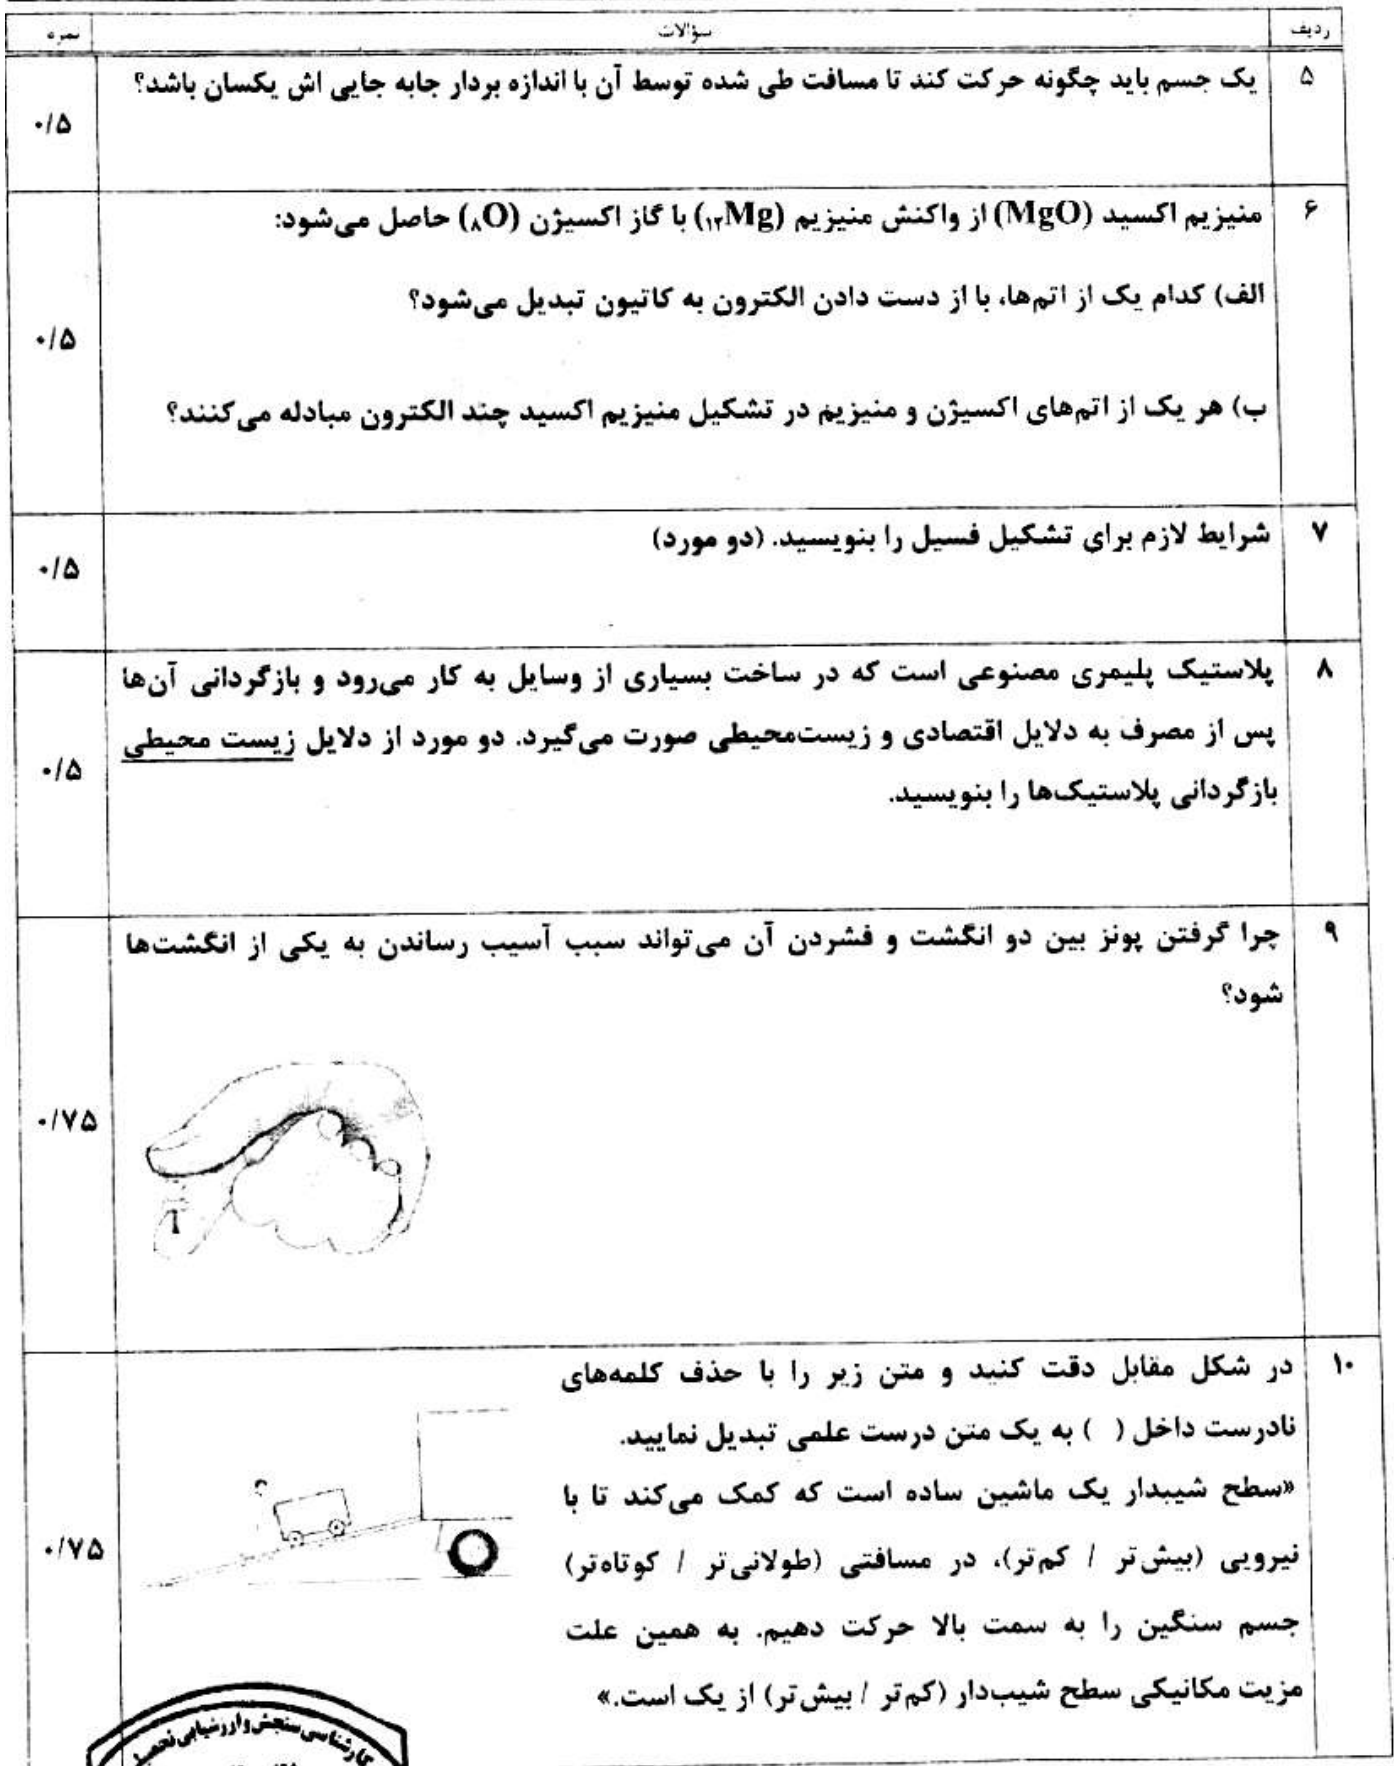 ردیف سؤالات نمره
۵ یک جسم باید چگونه حرکت کند تا مسافت طی شده توسط آن با اندازه بردار جابه جایی اش یکسان باشد؟
۰/۵
۶ منیزیم اکسید (MgO) از واکنش منیزیم (₁₂Mg) با گاز اکسیژن (₈O) حاصل می‌شود:
الف) کدام یک از اتم‌ها، با از دست دادن الکترون به کاتیون تبدیل می‌شود؟
۰/۵
ب) هر یک از اتم‌های اکسیژن و منیزیم در تشکیل منیزیم اکسید چند الکترون مبادله می‌کنند؟
۷ شرایط لازم برای تشکیل فسیل را بنویسید. (دو مورد)
۰/۵
۸ پلاستیک پلیمری مصنوعی است که در ساخت بسیاری از وسایل به کار می‌رود و بازگردانی آن‌ها
پس از مصرف به دلایل اقتصادی و زیست‌محیطی صورت می‌گیرد. دو مورد از دلایل زیست محیطی
۰/۵
بازگردانی پلاستیک‌ها را بنویسید.
۹ چرا گرفتن پونز بین دو انگشت و فشردن آن می‌تواند سبب آسیب رساندن به یکی از انگشت‌ها
شود؟
۰/۷۵
۱۰ در شکل مقابل دقت کنید و متن زیر را با حذف کلمه‌های
نادرست داخل ( ) به یک متن درست علمی تبدیل نمایید.
«سطح شیبدار یک ماشین ساده است که کمک می‌کند تا با
نیرویی (بیش‌تر / کم‌تر)، در مسافتی (طولانی‌تر / کوتاه‌تر)
۰/۷۵
جسم سنگین را به سمت بالا حرکت دهیم. به همین علت
مزیت مکانیکی سطح شیب‌دار (کم‌تر / بیش‌تر) از یک است.»
کارشناسی سنجش و ارزشیابی